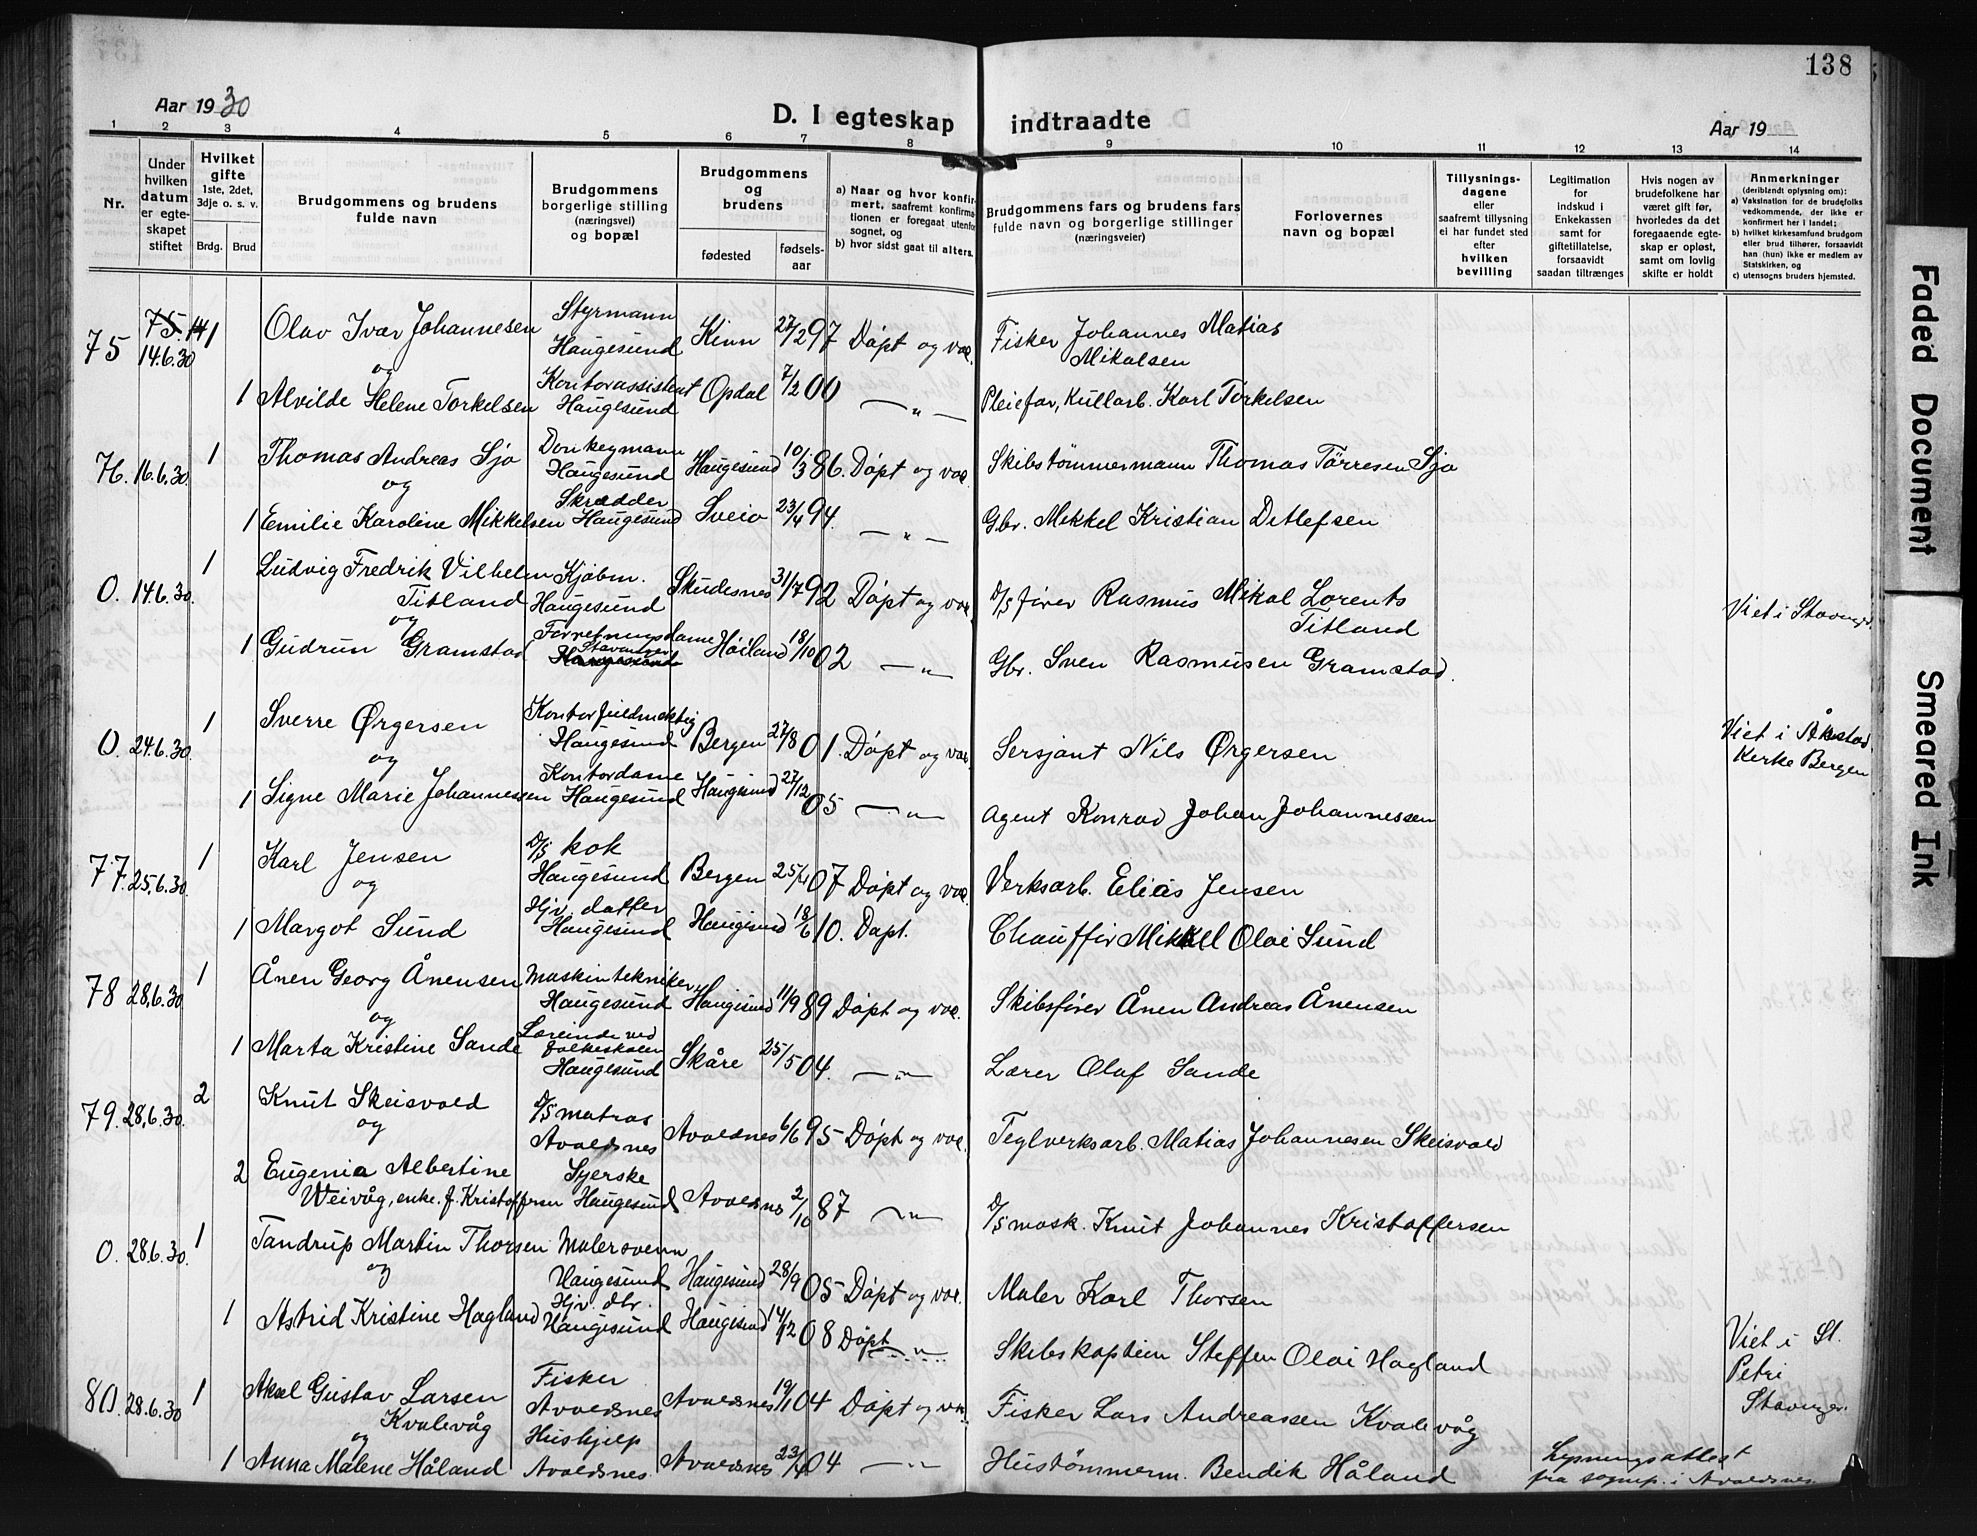 138
Aar 1930
D. I egteskap indtraadte
Aar 19
1 2 3 4 5 6 7 8 9 10 11 12 13 14
Nr.
Under hvilken datum er egteskapet stiftet
Hvilket gifte
1ste, 2det, 3dje o. s. v.
Brdg. Brud
Brudgommens og brudens fulde navn
Brudgommens borgerlige stilling (næringsvei) og bopæl
Brudgommens og brudens
fødested
fødselsaar
a) Naar og hvor konfirmert, saafremt konfirmationen er foregaat utenfor sognet, og
b) hvor sidst gaat til alters.
Brudgommens fars og brudens fars fulde navn og borgerlige stillinger (næringsveier)
Forlovernes navn og bopæl
Tillysningsdagene eller saafremt tillysning ei har fundet sted efter hvilken bevilling
Legitimation for indskud i Enkekassen samt for giftetillatelse, forsaavidt saadan tiltrænges
Hvis nogen av brudefolkene har været gift før, hvorledes da det foregaaende egteskap er opløst, samt om lovlig skifte er holdt
Anmerkninger
(deriblandt oplysning om):
a) Vaksination for de brudefolks vedkommende, der ikke er konfirmert her i landet;
b) hvilket kirkesamfund brudgom eller brud tilhører, forsaavidt han (hun) ikke er medlem av Statskirken, og
c) utensogns bruders hjemsted.
75 14.6.30 1 Olav Ivar Johannesen Styrmann Haugesund Kinn 27/2 97 Døpt og vac. Fisker Johannes Matias Mikalsen
og
1 Alvilde Helene Torkelsen Kontorassistent Haugesund Opdal 7/2 00 — " — Pleiefar, Kullarb. Karl Torkelsen
76. 16.6.30. 1 Thomas Andreas Sjo Donkeymann Haugesund Haugesund 10/3 86. Døpt og vac. Skibstømmermann Thomas Tørresen Sjo
og
1 Emilie Karoline Mikkelsen Skrædder Haugesund Sveio 23/4 94. — " — Gbr. Mikkel Kristian Detlefsen
0. 14.6.30. 1 Ludvig Fredrik Vilhelm Titland Kjøbm. Haugesund Skudesnes 31/7 92 Døpt og vac. D/S fører Rasmus Mikal Lorents Titland Viet i Stavanger.
og
1 Gudrun Gramstad Forretningsdame Stavanger Høiland 18/10 02 — " Gbr. Sven Rasmusen Gramstad.
0. 24.6.30. 1 Sverre Ørgersen Kontorfuldmektig Haugesund Bergen 27/8 01. Døpt og vac. Sersjant Nils Ørgersen Viet i Årstad Kirke Bergen
og
1 Signe Marie Johannessen Kontordame Haugesund Haugesund 27/12 05 — " — Agent Konrad Johan Johannessen
77. 25.6.30. 1 Karl Jensen D/S kok Haugesund Bergen 25/4 07 Døpt og vac. Verksarb. Elias Jensen
og
1 Margot Sund Hjv. datter Haugesund Haugesund 18/6 10. Døpt. Chauffør Mikkel Olai Sund
78 28.6.30. 1 Ånen Georg Ånensen Maskintekniker Haugesund Haugesund 11/9 89 Døpt og vac. Skibsfører Ånen Andreas Ånensen
og
1 Marta Kristine Sande Lærerinde ved folkeskolen Haugesund Skåre 25/5 04. — " — Lærer Olaf Sande
79. 28.6.30. 2 Knut Skeisvold D/S matros Avaldsnes Avaldsnes 6/6 95 Døpt og vac. Teglverksarb. Matias Johannesen Skeisvold
og
2 Eugenia Albertine Weivåg, enke. f. Kristoffersen Syerske Haugesund Avaldsnes 2/10 87 — " — D/S mask. Knut Johannes Kristoffersen
0. 28.6.30. 1 Tandrup Martin Thorsen Malersvenn Haugesund Haugesund 28/9 05 Døpt og vac. Maler Karl Thorsen
og
1 Astrid Kristine Hagland Hjv. dtr. Haugesund Haugesund 14/12 08 Døpt — " — Skibskaptein Steffen Olai Hagland Viet i St. Petri Stavanger.
80. 28.6.30 1 Aksel Gustav Larsen Kvalevåg Fisker Avaldsnes Avaldsnes 19/1 04 Døpt og vac. Fisker Lars Andreassen Kvalevåg
og
1 Anna Malene Håland Hushjelp Avaldsnes. Avaldsnes 23/4 04 — " — Hustømmerm. Bendik Håland Lysningsattest fra sognep. i Avaldsnes
Faded Document
Smeared Ink